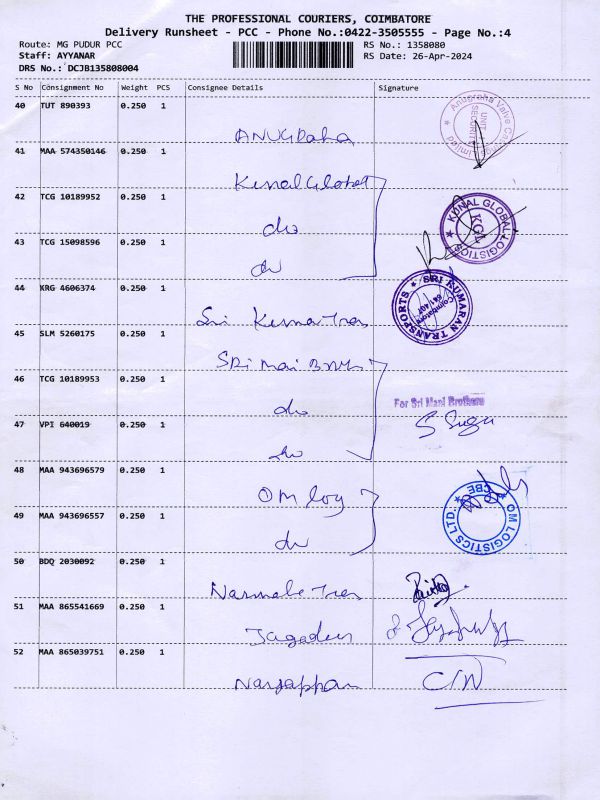 THE PROFESSIONAL COURIERS, COIMBATORE
Delivery Runsheet - PCC - Phone No.:0422-3505555 - Page No.:4
Route: MG PUDUR PCC
RS No.: 1358080
Staff: AYYANAR
RS Date: 26-Apr-2024
DRS No.: DCJB135808004
S No Consignment No Weight PCS Consignee Details Signature
40 TUT 890393 0.250 1
ANUGRaha
Anugraha Valve Castings Limited
UNIT
SECURITY
41 MAA 574350146 0.250 1
Kunal Global
42 TCG 10189952 0.250 1
do
KUNAL GLOBAL LOGISTICS
KGL
43 TCG 15098596 0.250 1
do
44 KRG 4606374 0.250 1
Sri Kumaran Trans
SRI KUMARAN TRANSPORTS
Coimbatore
641407
45 SLM 5260175 0.250 1
SRi Mani Bros
46 TCG 10189953 0.250 1
do
For Sri Mani Brothers
47 VPI 640019 0.250 1
do
48 MAA 943696579 0.250 1
OM log
49 MAA 943696557 0.250 1
do
OM LOGISTICS LTD. CBE
50 BDQ 2030092 0.250 1
51 MAA 865541669 0.250 1
52 MAA 865039751 0.250 1
Nanjappan